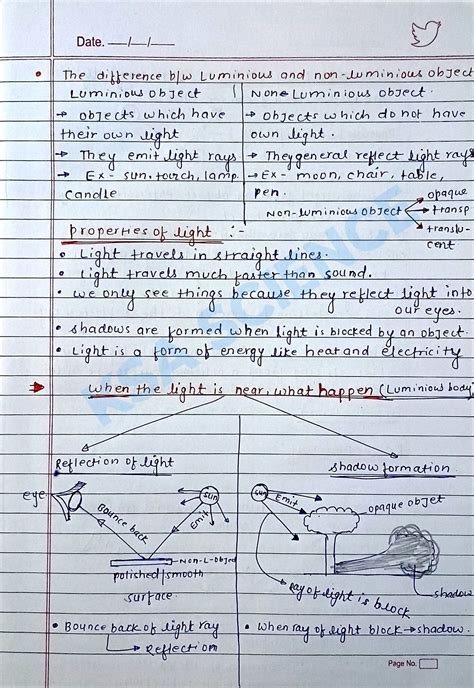 Date. —/—/—
• The difference b/w Luminious and non-luminious object
Luminious object
→ objects which have
their own light
→ They emit light rays
→ Ex - sun, tourch, lamp
candle
None Luminious object.
→ objects which do not have
own light.
→ They general reflect light rays
→ Ex - moon, chair, table,
pen.
Non-luminious object
opaque
transp
translu-
cent
Properties of light :-
• Light travels in straight lines.
• Light travels much faster than sound.
• we only see things because they reflect light into
our eyes.
• shadows are formed when light is blocked by an object.
• Light is a form of energy like heat and electricity
When the light is near, what happen (Luminious body)
Reflection of light
eye
sun
Bounce back
Emit
Non-L-Object
polished/smooth
surface
• Bounce back of light ray
↳ Reflection
shadow formation
sun
Emit
opaque objet
Ray of light is block
shadow
• When ray of light block → shadow.
Page No.
KSA SCIENCE